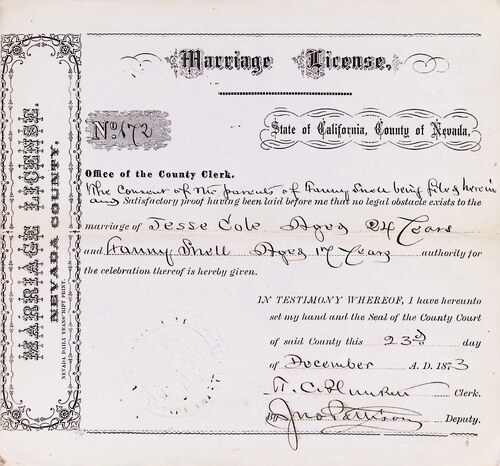 Marriage License.
No. 172
State of California, County of Nevada.
Office of the County Clerk.
The Consent of the parents of Fanny Snell being filed herein
and Satisfactory proof having been laid before me that no legal obstacle exists to the
marriage of Jesse Cole Aged 24 Years
and Fanny Snell Aged 17 Years authority for
the celebration thereof is hereby given.
IN TESTIMONY WHEREOF, I have hereunto
set my hand and the Seal of the County Court
of said County this 23rd day
of December A. D. 1873
Clerk.
By Jno Pattison Deputy.
MARRIAGE LICENSE.
NEVADA COUNTY.
NEVADA DAILY TRANSCRIPT PRINT.